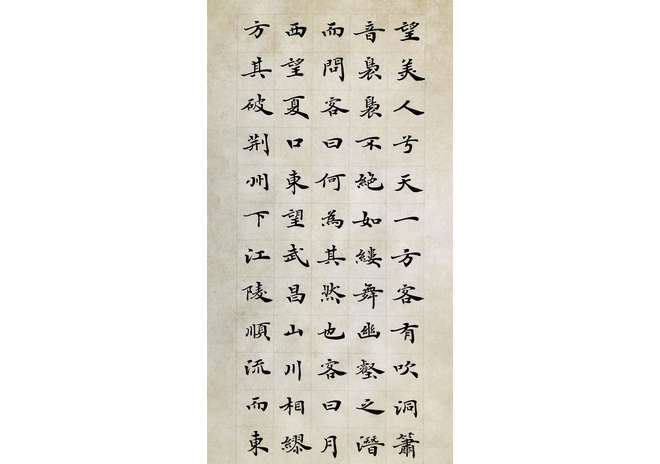 望美人兮天一方客有吹洞簫
音裊裊不絕如縷舞幽壑之潛
而問客曰何為其然也客曰月
西望夏口東望武昌山川相繆
方其破荆州下江陵順流而東